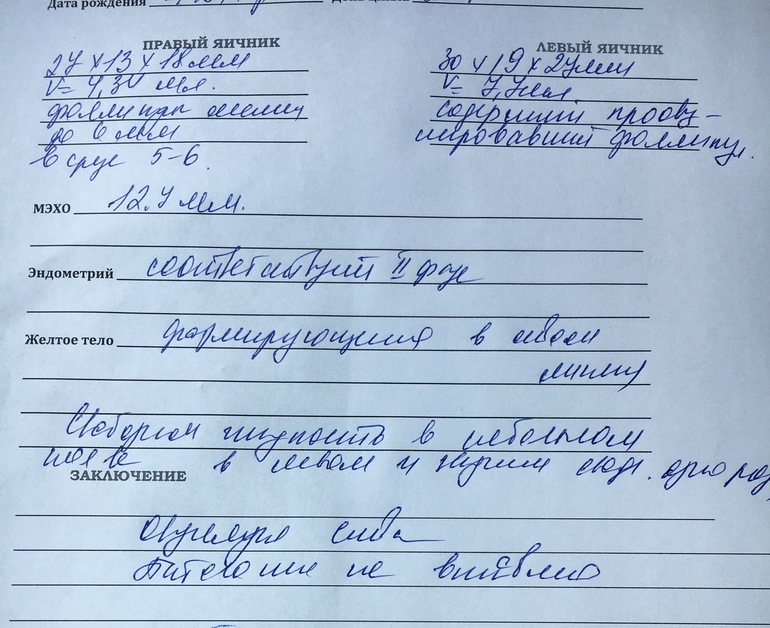 Дата рождения
ПРАВЫЙ ЯИЧНИК
27 x 13 x 18 мм
V= 4,34 мл.
до 6 мм
в срезе 5-6.
ЛЕВЫЙ ЯИЧНИК
30 x 19 x 27 мм
V= 7,7 мл
содержит проову-
лировавший фолликул.
МЭХО 12.4 мм.
Эндометрий соответствует II фазе
Желтое тело формирующееся в левом
яичнике
Свободная жидкость в небольшом
кол-ве в левом и
ЗАКЛЮЧЕНИЕ
Овуляция слева
Патологии не выявлено